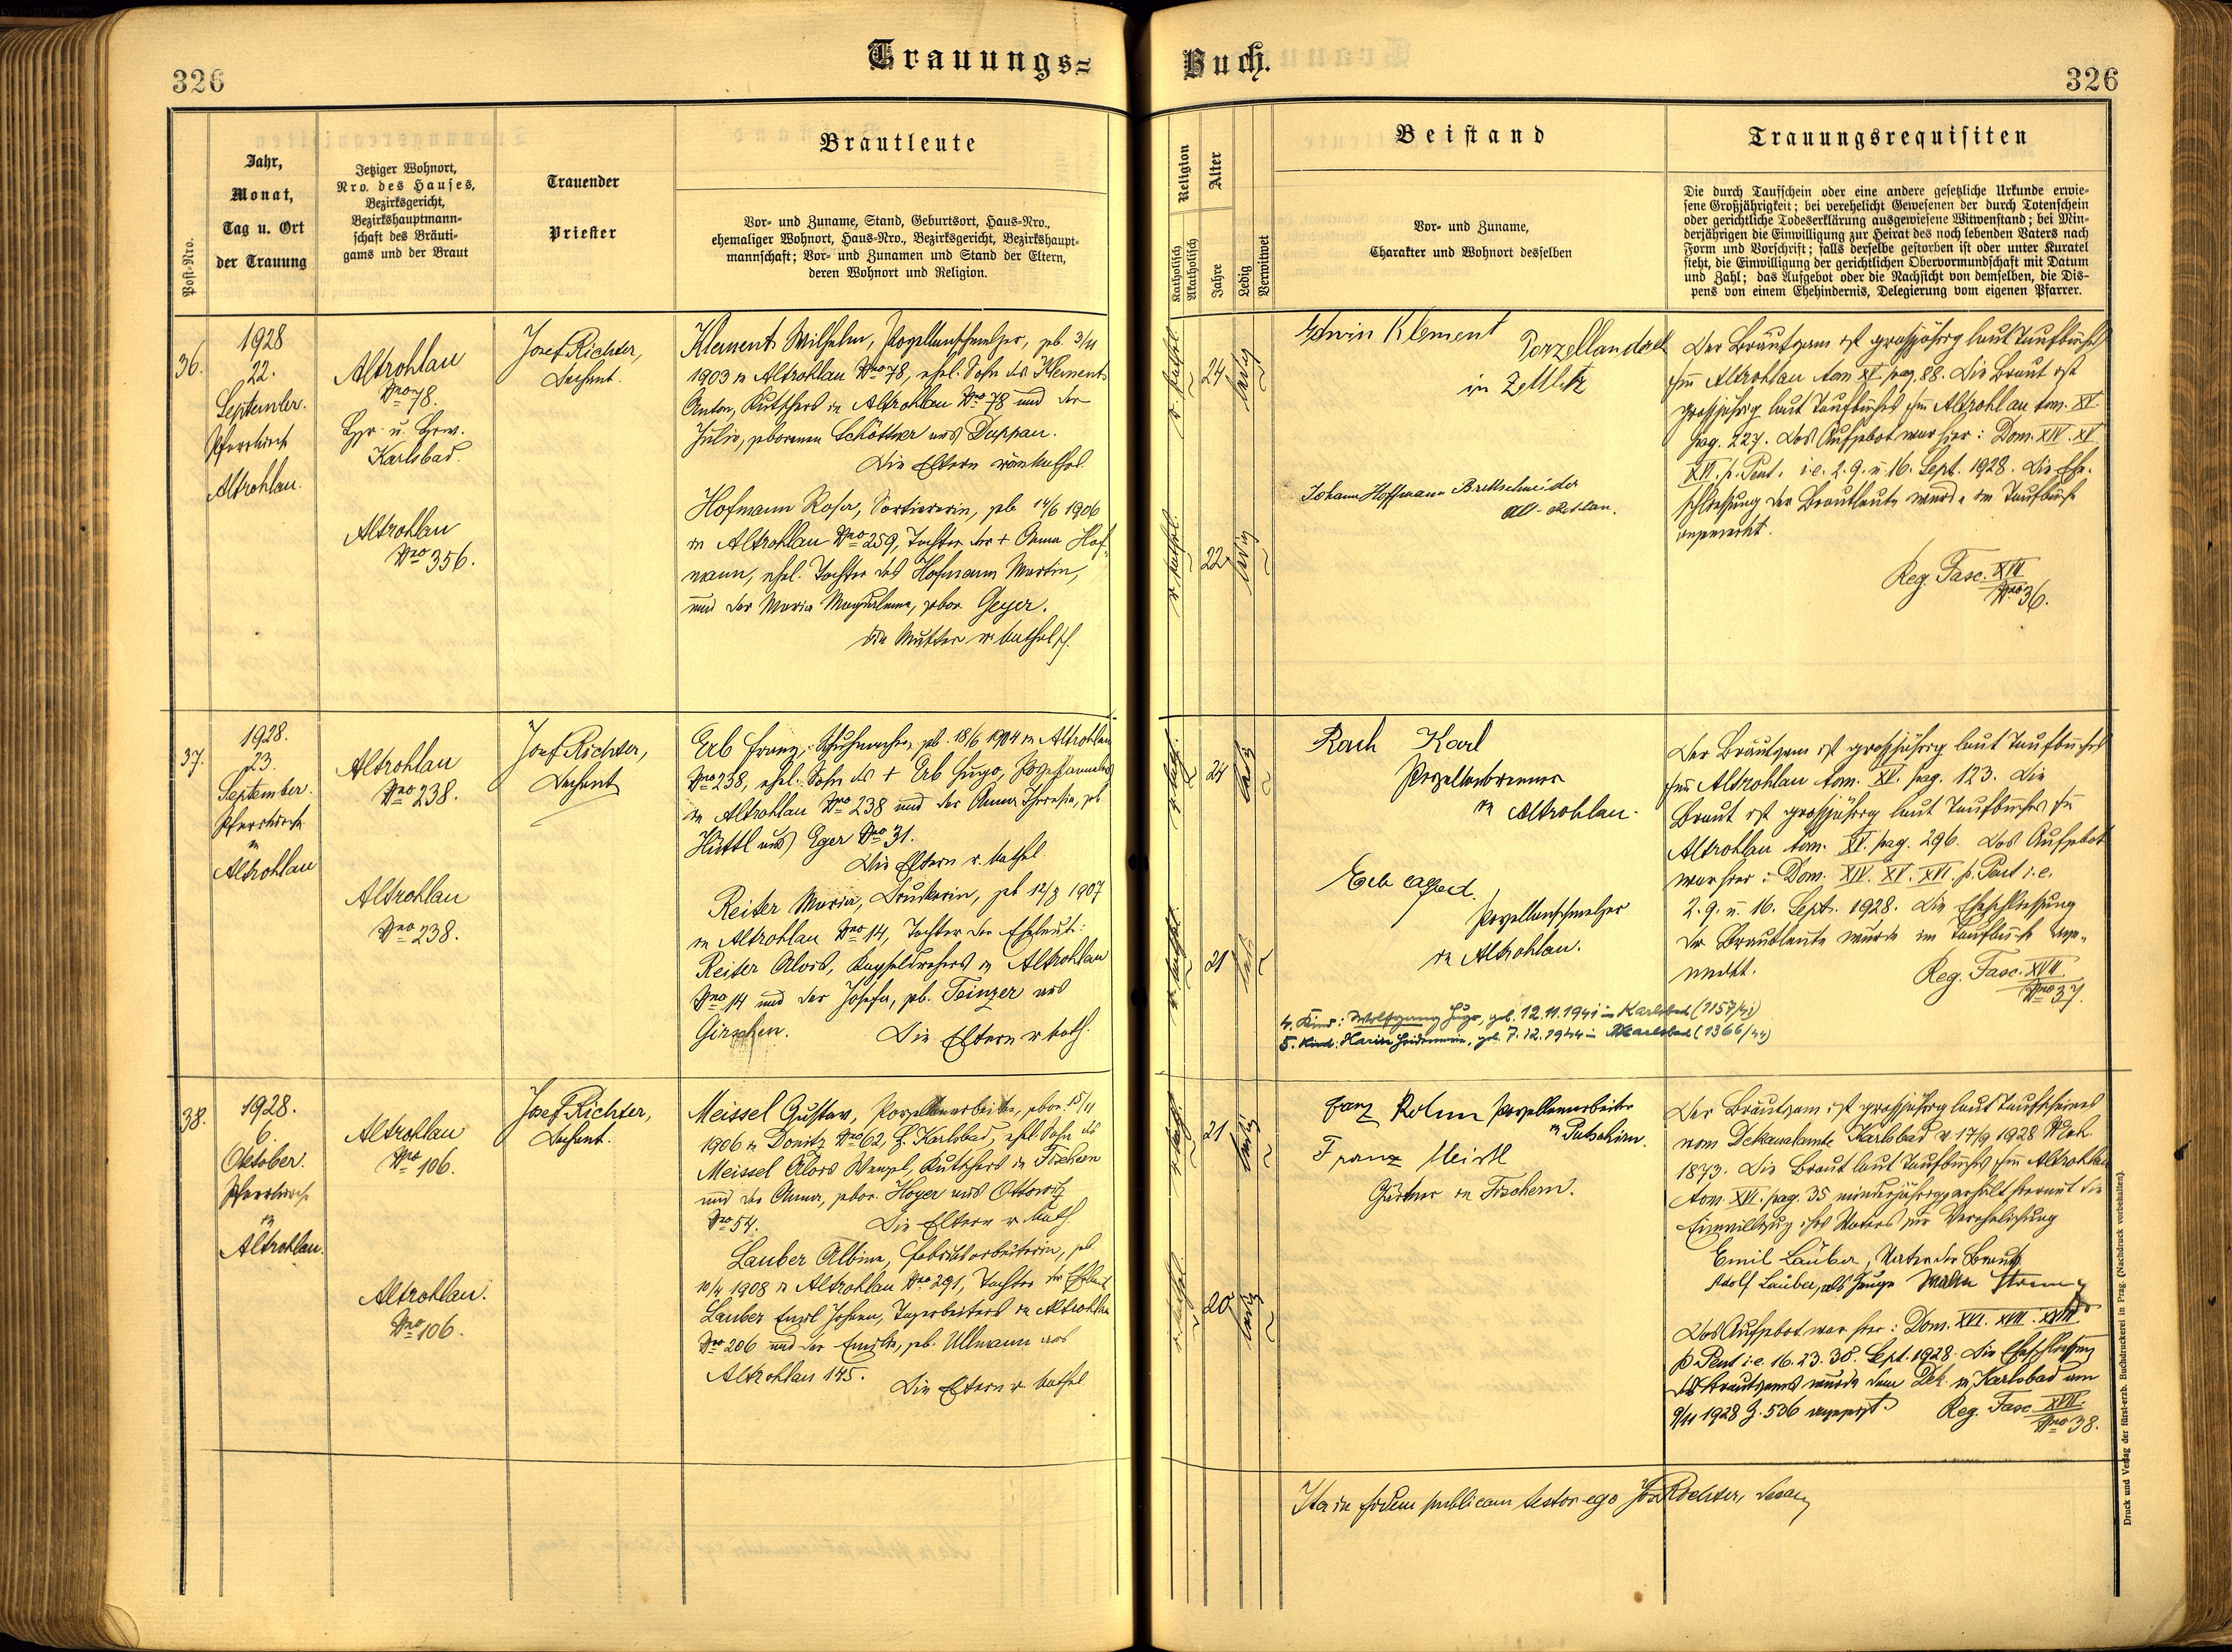 326
Trauungs=
Post-Nro.
Jahr,
Monat,
Tag u. Ort
der Trauung
Jetziger Wohnort,
Nro. des Hauses,
Bezirksgericht,
Bezirkshauptmann-
schaft des Bräuti-
gams und der Braut
Trauender
Priester
Brautleute
Vor- und Zuname, Stand, Geburtsort, Haus-Nro.,
ehemaliger Wohnort, Haus-Nro., Bezirksgericht, Bezirkshaupt-
mannschaft; Vor- und Zunamen und Stand der Eltern,
deren Wohnort und Religion.
36.
1928
22.
September.
Pfarrkirche
Altrohlau.
Altrohlau
Nro 78.
Karlsbad.
Altrohlau
Nro 356.
Josef Richter,
Dechant.
Klement Wilhelm, Porzellanschmelzer, geb. 3/11
1903 in Altrohlau Nro 78, ehel. Sohn des Klement
Anton, Kutschers in Altrohlau Nro 78 und der
Julie, geborenen Schöttner aus Duppau.
Die Eltern röm kathol.
Hofmann Rosa, Sortiererin, geb. 14/6 1906
in Altrohlau Nro 259, Tochter der + Anna Hof-
mann, ehel. Tochter des Hofmann Martin,
und der Maria Magdalena, gebor. Geyer.
die Mutter r. katholisch.
37.
1928.
23.
September.
Pfarrkirche
in
Altrohlau
Altrohlau
Nro 238.
Altrohlau
Nro 238.
Josef Richter,
Dechant
Erb Franz, Schuhmacher, geb. 18/6 1904 in Altrohlau
Nro 238, ehel. Sohn des + Erb Hugo,
in Altrohlau Nro 238 und der Anna Theresia, geb
Hüttl aus Eger Nro 31.
Die Eltern r. kathol
Reiter Maria, Druckerin, geb 12/3 1907
in Altrohlau Nro 14, Tochter der Eheleute:
Reiter Alois, Kapseldrehers in Altrohlau
Nro 14 und der Josefa, geb. Teinzer aus
Girschen. Die Eltern r kath.
38.
1928.
6.
Oktober.
Pfarrkirche
in
Altrohlau.
Altrohlau
Nro 106.
Altrohlau.
Nro 106.
Josef Richter,
Dechant.
Meissel Gustav, Porzellanarbeiter, gebor. 15/11
1906 in Donitz Nro 62 B. Karlsbad, ehel. Sohn des
Meissel Alois Wenzel, Kutschers in Fischern
und der Anna, gebor. Hoyer aus Ottowitz
Nro 54. Die Eltern r. kath
Lauber Albine, Fabriksarbeiterin, geb
10/4 1908 in Altrohlau Nro 291, Tochter der Eheleute
Lauber Emil Johann, Tagarbeiters in Altrohlau
Nro 206 und der Emilie, geb. Ullmann aus
Altrohlau 145. Die Eltern r. kathol.
Buch.
326
Religion
Katholisch
Akatholisch
Alter
Jahre
Ledig
Verwitwet
Beistand
Vor- und Zuname,
Charakter und Wohnort desselben
Trauungsrequisiten
Die durch Taufschein oder eine andere gesetzliche Urkunde erwie-
sene Großjährigkeit; bei verehelicht Gewesenen der durch Totenschein
oder gerichtliche Todeserklärung ausgewiesene Witwenstand; bei Min-
derjährigen die Einwilligung zur Heirat des noch lebenden Vaters nach
Form und Vorschrift; falls derselbe gestorben ist oder unter Kuratel
steht, die Einwilligung der gerichtlichen Obervormundschaft mit Datum
und Zahl; das Aufgebot oder die Nachsicht von demselben, die Dis-
pens von einem Ehehindernis, Delegierung vom eigenen Pfarrer.
r. kathol.
24
ledig
r. kathol.
22
ledig
Edwin Klement
in Zettlitz
Johann Hoffmann Brettschneider
Alt-Rohlau.
Der Bräutigam ist großjährig laut Taufbuches
hier Altrohlau tom XV pag. 88. Die Braut ist
großjährig laut Taufbuches hier Altrohlau tom. XV
pag. 227. Das Aufgebot war hier: Dom. XIV. XV
XVI. p. Pent. i.e. 2. 9. u. 16. Sept. 1928. Die Ehe-
schließung der Brautleute wurde im Taufbuche
angemerkt.
Reg. Fasc. XVII
Nro 36.
r. kathol.
24
ledig
r. kathol.
21
ledig
Rach Karl
Porzellanbrenner
in Altrohlau.
Erb
Porzellanschmelzer
in Altrohlau.
4. Kind: Wolfgang Hugo, geb. 12.11.1941 in Karlsbad (1157/41)
5. Kind: Karin Heidemarie, geb. 7.12.1944 in Karlsbad (1366/44)
Der Bräutigam ist großjährig laut Taufbuches
hier Altrohlau tom. XV. pag. 123. Die
Braut ist großjährig laut Taufbuches hier
Altrohlau tom. XV. pag. 296. Das Aufgebot
war hier: Dom. XIV. XV. XVI. p. Pent i.e.
2. 9. u. 16. Sept. 1928. Die Eheschließung
der Brautleute wurde im Taufbuche ange-
merkt.
Reg. Fasc. XVII
Nro 37.
r. kathol.
21
ledig
r. kathol.
20
ledig
Franz Porzellanarbeiter
in Putschirn.
Franz Meistl
Gärtner in Fischern.
Der Bräutigam ist großjährig laut Taufscheines
vom Dekanalamte Karlsbad v. 17/9 1928
1873. Die Braut laut Taufbuches hier Altrohlau
tom. XVI. pag. 35 minderjährig erhält hiermit die
Einwilligung ihres Vaters zur Verehelichung
Emil Lauber, Vater der Braut
Adolf Lauber, als Zeuge
Das Aufgebot war hier: Dom. XVI. XVII. XVIII
p. Pent i.e. 16. 23. 30. Sept. 1928. Die Eheschließung
des Bräutigams wurde dem Dek. in Karlsbad am
9/11 1928 Z. 536 angezeigt. Reg. Fasc. XVII.
Nro 38.
Ita in fidem publicam testor ego Jos Richter, Decan
Druck und Verlag der fürst-erzb. Buchdruckerei in Prag. (Nachdruck vorbehalten).